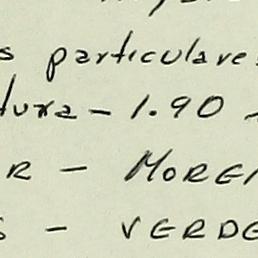 s particulares
tura - 1.90 -
R - MORE
s - VERDE